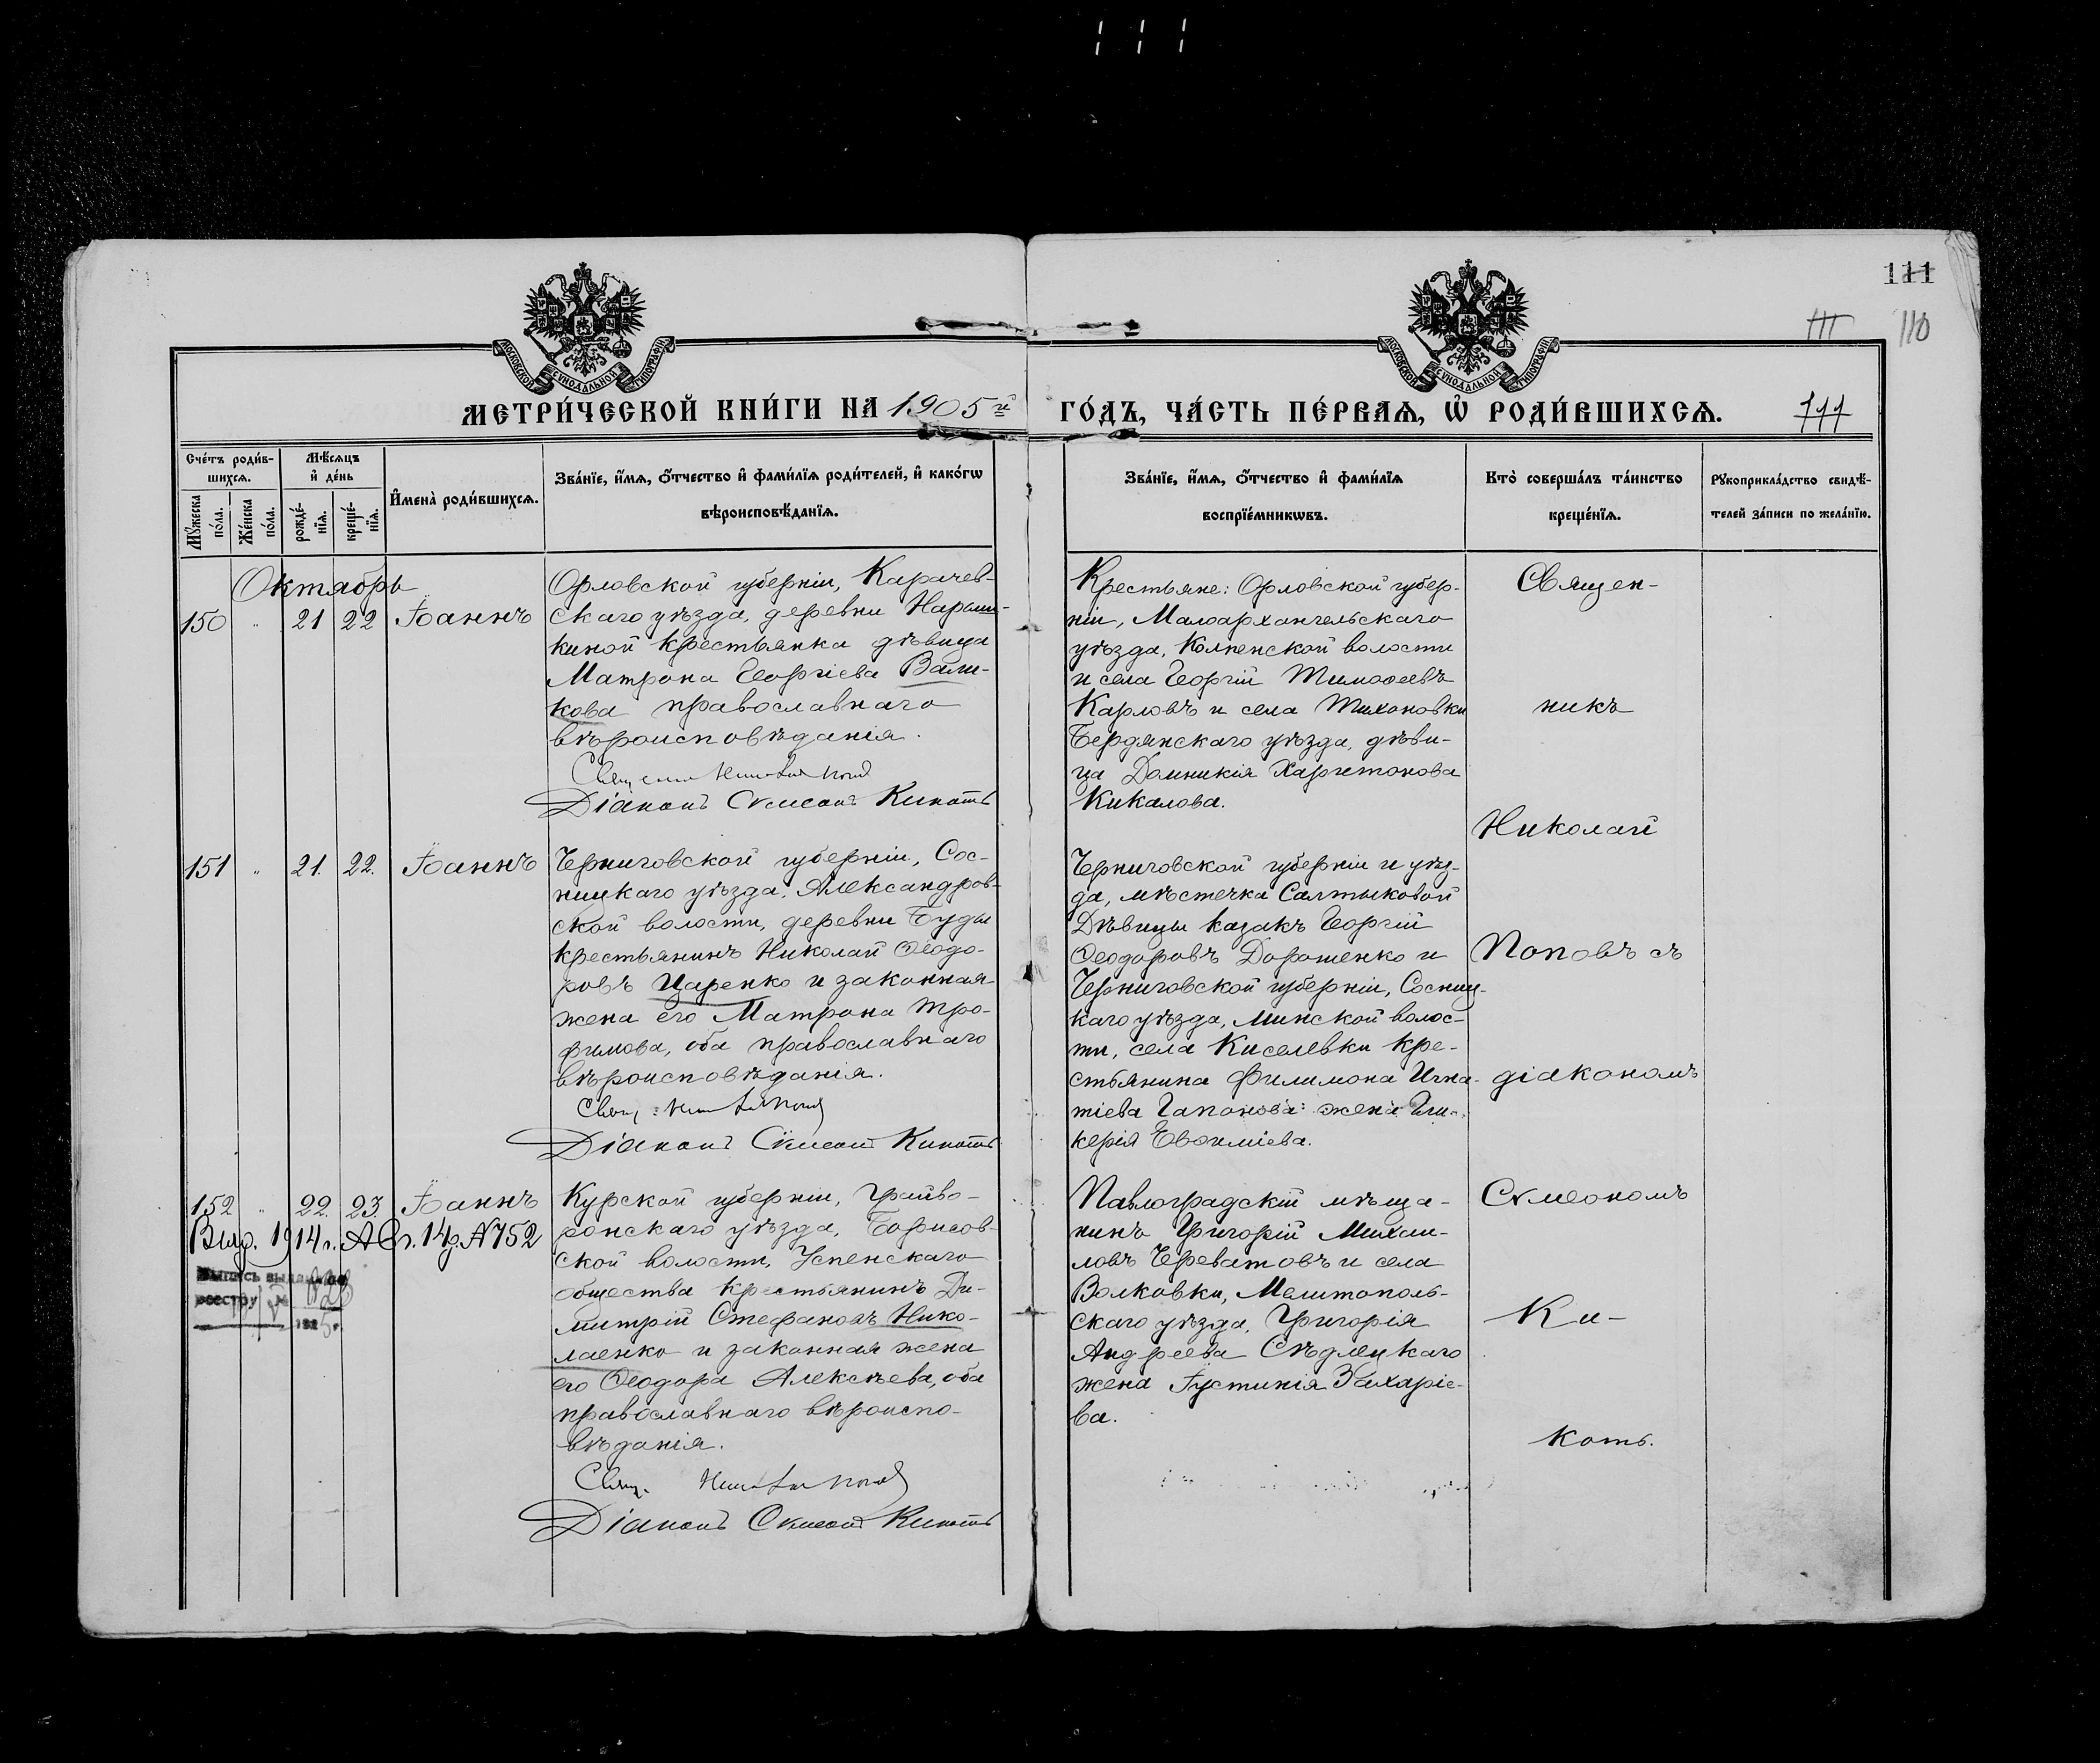 111
111
111 110
МОСКОВСКОЙ СѴНОДАЛЬНОЙ ТИПОГРАФІИ
МОСКОВСКОЙ СѴНОДАЛЬНОЙ ТИПОГРАФІИ
МЕТРИ́ЧЕСКОЙ КНИ́ГИ НА 1905й ГО́ДЪ, ЧА́СТЬ ПЕ́РВАѦ, Ѡ҆ РОДИ́ВШИХСѦ. 111
Сче́тъ роди́в-
шихсѧ.
Мꙋ́жеска
по́ла.
Же́нска
по́ла.
Мѣ́сѧцъ
и҆ де́нь
рожде́-
нїѧ.
креще́-
нїѧ.
И҆мена̀ роди́вшихсѧ.
Зва́нїе, и҆́мѧ, ѻ҆́тчество и҆ фами́лїѧ роди́телей, и҆ како́гѡ
вѣроисповѣ́данїѧ.
Зва́нїе, и҆́мѧ, ѻ҆́тчество и҆ фами́лїѧ
воспрїе́мникѡвъ.
Кто̀ соверша́лъ та́инство
креще́нїѧ.
Рꙋкоприкла́дство свидѣ́-
телей за́писи по жела́нїю.
Октябрь
150 " 21 22 Іоаннъ
Орловской губерніи, Карачев-
скаго уѣзда, деревни Нарыш-
киной крестьянка дѣвица
Матрона Георгіева Вали-
кова православнаго
вѣроисповѣданія.
Священ. Николай Поповъ
Діаконъ Сѵмеонъ Кикоть
Крестьяне: Орловской губер-
ніи, Малоархангельскаго
уѣзда, Колпенской волости
и села Георгій Тимоѳеевъ
Карловъ и села Тихоновки
Бердянскаго уѣзда, дѣви-
ца Домникія Харитонова
Кикалова.
151 " 21. 22. Іоаннъ
Черниговской губерніи, Сос-
ницкаго уѣзда, Александров-
ской волости, деревни Буды
крестьянинъ Николай Ѳеодо-
ровъ Царенко и законная
жена его Матрона Тро-
фимова, оба православнаго
вѣроисповѣданія.
Свящ. Николай Поповъ
Діаконъ Сѵмеонъ Кикоть
Черниговской губерніи и уѣз-
да, мѣстечка Салтыковой
Дѣвицы казакъ Георгій
Ѳеодоровъ Дорошенко и
Черниговской губерніи, Сосниц-
каго уѣзда, Минской волос-
ти, села Киселевки кре-
стьянина Филимона Игна-
тіева Гапонова жена Гли-
керія Евѳиміева.
152 " 22. 23. Іоаннъ
1914г. №752
Выпись выдана по
реестру №
192 г.
Курской губерніи, Грайво-
ронскаго уѣзда, Борисов-
ской волости, Успенскаго
общества крестьянинъ Ди-
митрій Стефановъ Нико-
лаенко и законная жена
его Ѳеодора Алексѣева, оба
православнаго вѣроиспо-
вѣданія.
Свящ. Николай Поповъ
Діаконъ Сѵмеонъ Кикоть
Павлоградскій мѣща-
нинъ Григорій Михаи-
ловъ Череватовъ и села
Волковки, Мелитополь-
скаго уѣзда, Григорія
Андреева Сѣдлецкаго
жена Іустинія Захаріе-
ва.
Священ-
никъ
Николай
Поповъ съ
діакономъ
Сѵмеономъ
Ки-
коть.